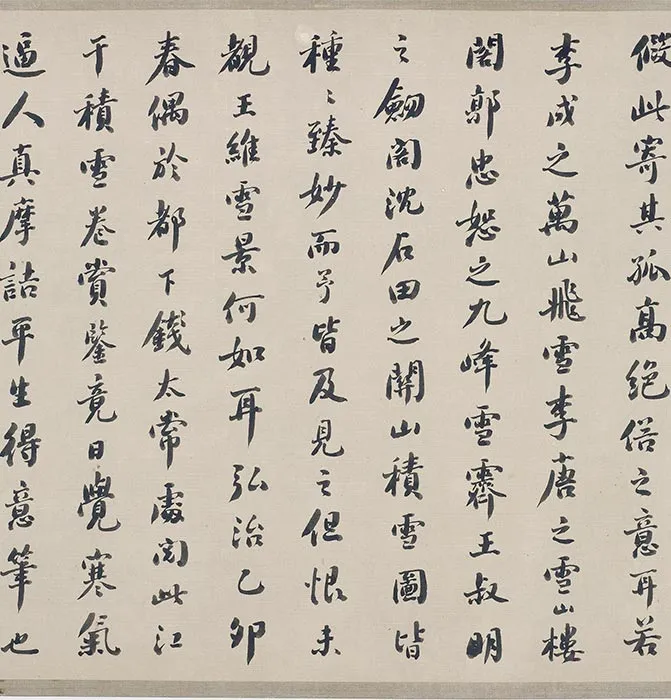 假此寄其孤高絕俗之意耳若
李成之萬山飛雪李唐之雪山樓
閣郭忠恕之九峰雪霽王叔明
之劒閣沈石田之關山積雪圖皆
種〻臻妙而予皆及見之但恨未
覩王維雪景何如耳弘治乙卯
春偶於都下錢太常處閱此江
干積雪卷賞鑒竟日覺寒氣
逼人真摩詰平生得意筆也